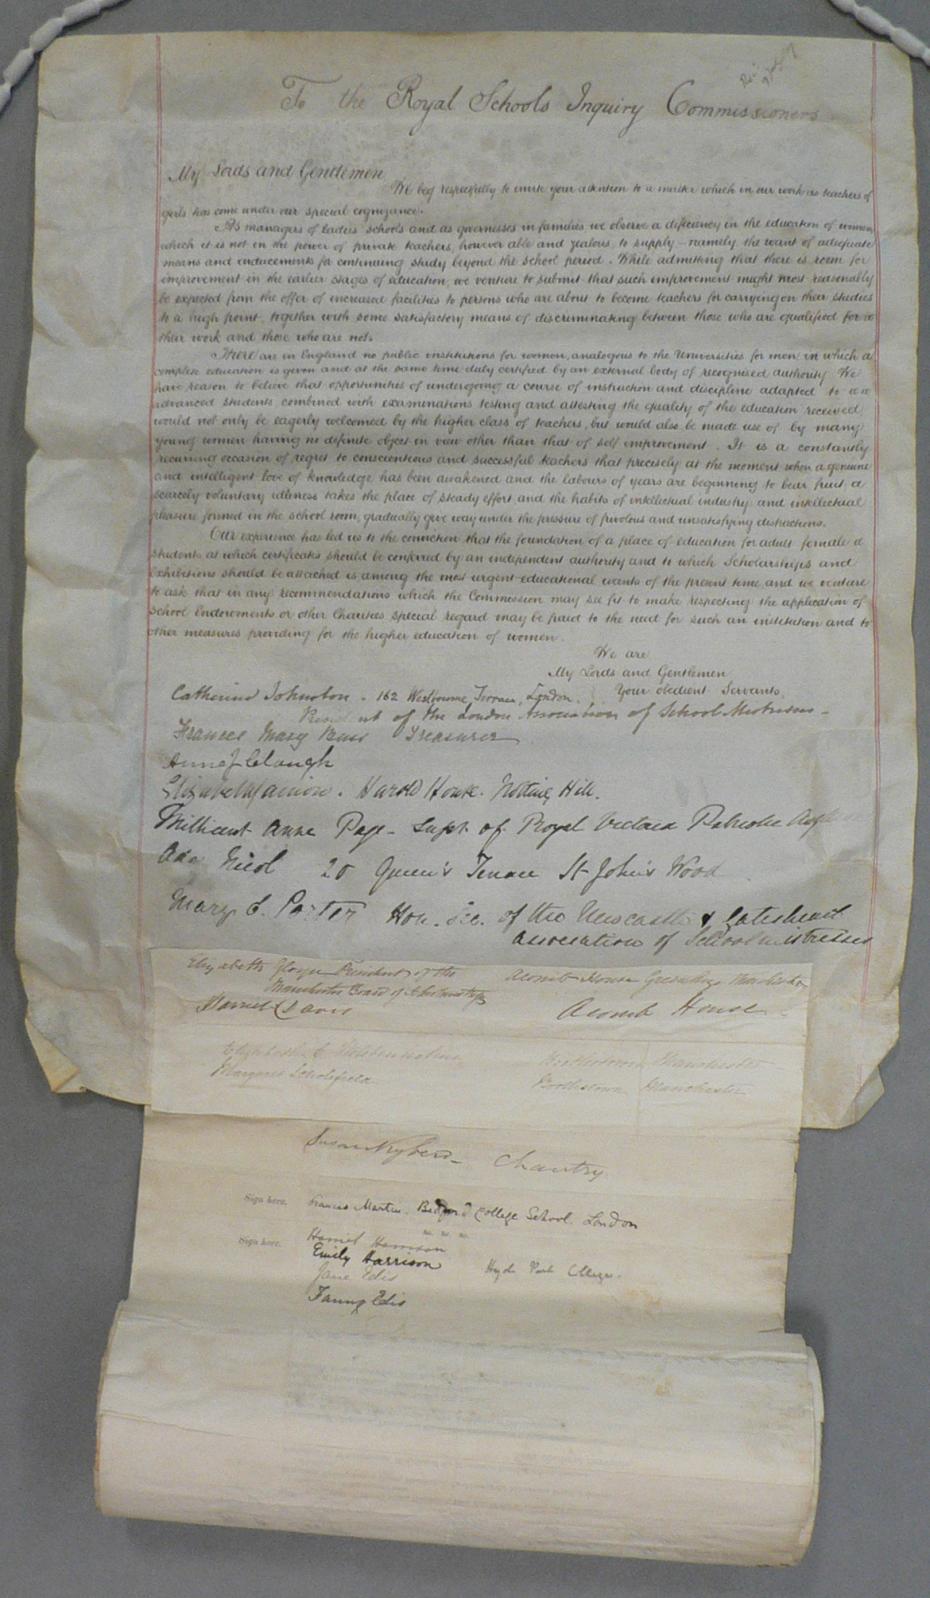 To the Royal Schools Inquiry Commissioners
My Lords and Gentlemen
We beg respectfully to invite your attention to a matter which in our work as teachers of
girls has come under our special cognizance.
As managers of ladies' schools and as governesses in families we observe a deficiency in the education of women
which it is not in the power of private teachers, however able and zealous, to supply – namely the want of adequate
means and inducements for continuing study beyond the school period. While admitting that there is room for
improvement in the earlier stages of education, we venture to submit that such improvement might most reasonably
be expected from the offer of increased facilities to persons who are about to become teachers for carrying on their studies
to a high point, together with some satisfactory means of discriminating between those who are qualified for
their work and those who are not.
There are in England no public institutions for women, analogous to the Universities for men in which a
complete education is given and at the same time duly certified by an external body of recognised authority. We
have reason to believe that opportunities of undergoing a course of instruction and discipline adapted to
advanced students combined with examinations testing and attesting the quality of the education received
would not only be eagerly welcomed by the higher class of teachers, but would also be made use of by many
young women having no definite object in view other than that of self improvement. It is a constantly
recurring occasion of regret to conscientious and successful teachers that precisely at the moment when a genuine
and intelligent love of knowledge has been awakened and the labours of years are beginning to bear fruit, a
scarcely voluntary idleness takes the place of steady effort and the habits of intellectual industry and intellectual
pleasure formed in the school room, gradually give way under the pressure of frivolous and unsatisfying distractions.
Our experience has led us to the conviction that the foundation of a place of education for adult female
students at which certificates should be conferred by an independent authority and to which Scholarships and
Exhibitions should be attached is among the most urgent educational wants of the present time, and we venture
to ask that in any recommendations which the Commission may see fit to make respecting the application of
School Endowments or other Charities special regard may be paid to the need for such an institution and to
other measures providing for the higher education of women.
We are
My Lords and Gentlemen
Your obedient Servants,
Catherine Johnston - 162 Westbourne Terrace, London.
President of the London Association of School Mistresses -
Frances Mary Buss Treasurer
Anne J Clough
Harold House. Notting Hill.
Millicent Anne Page - Supt. of Royal Victoria Patriotic
Ada Nicol 20 Queen's Terrace St John's Wood
Mary E. Porter Hon. Sec. of the Newcastle & Gateshead
association of Schoolmistresses
Elizabeth Gloyn President of the Acomb House Manchester
Manchester Board of Schoolmistress
Harriet Davis Acomb House
Elizabeth C Manchester
Margaret Scholefield Boothstown Manchester
Susan Kyberd - Chantry
Sign here. Frances Martin. Bedford College School. London
Sign here. Harriet Harrison " " "
Emily Harrison Hyde Park College.
Jane Edis
Fanny Edis